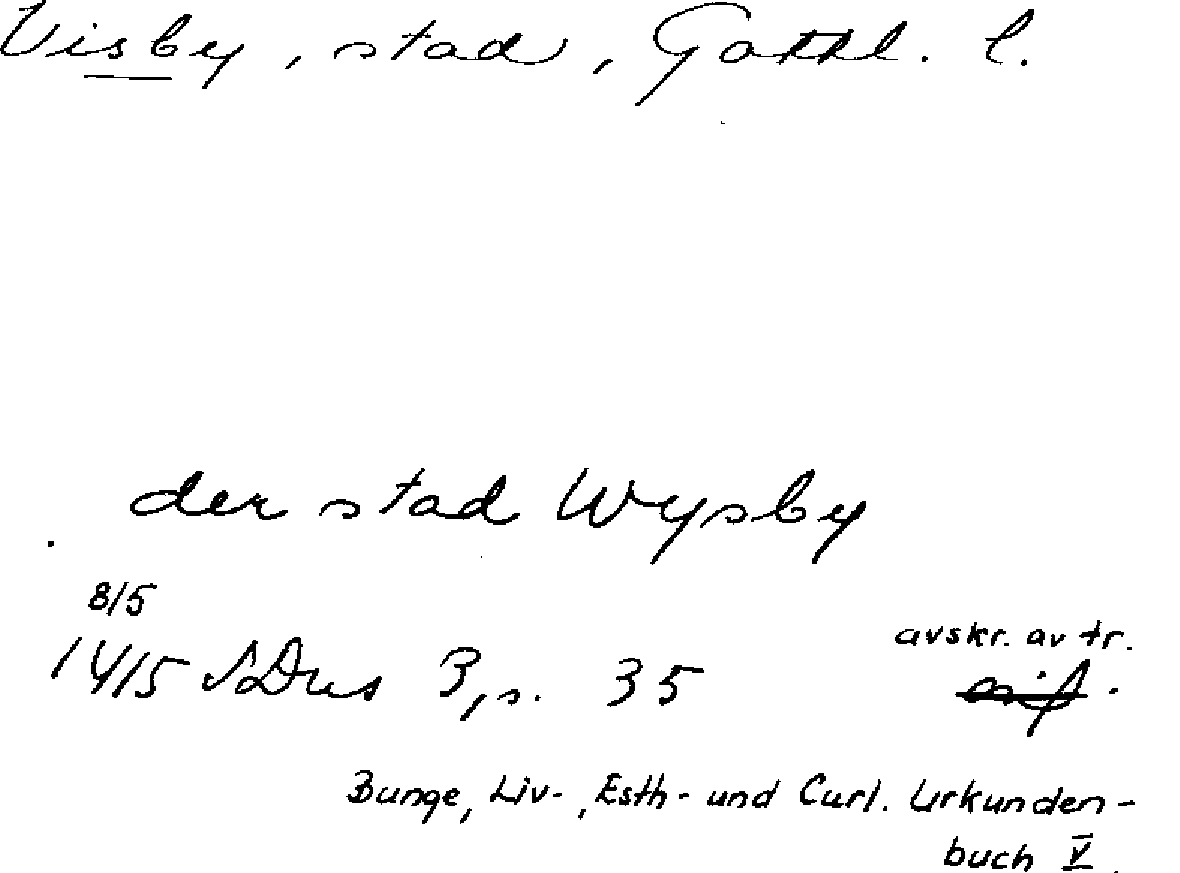 Visby, stad, Gottl. l.
der stad Wysby
8/5
1415 SDns 3, s. 35
avskr. av tr.
Bunge, Liv-, Esth- und Curl. Urkunden-
buch V.